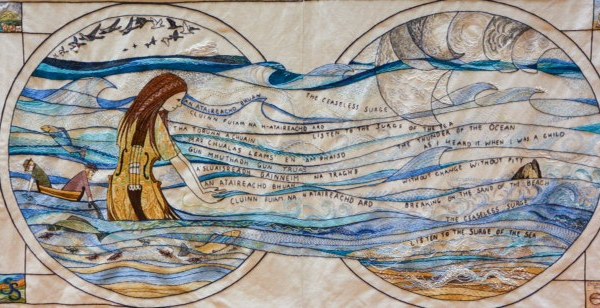 AN ATAIREACHD BHUAN
CLUINN FUAIM NA H-ATAIREACHD ARD
THA TORUNN A'CHUAIN
MAR CHUALAS LEAMS EN AM PHAISD
GUN MHUTHADH GUN TRUAS
A SLUAISREADH GAINNEIMH NA TRAGHD
AN ATAIREACHD BHUAN
CLUINN FUAIM NA H ATAIREACHD ARD
THE CEASELESS SURGE
LISTEN TO THE SURGE OF THE SEA
THE THUNDER OF THE OCEAN
AS I HEARD IT WHEN I WAS A CHILD
WITHOUT CHANGE WITHOUT PITY
BREAKING ON THE SAND OF THE BEACH
THE CEASELESS SURGE
LISTEN TO THE SURGE OF THE SEA